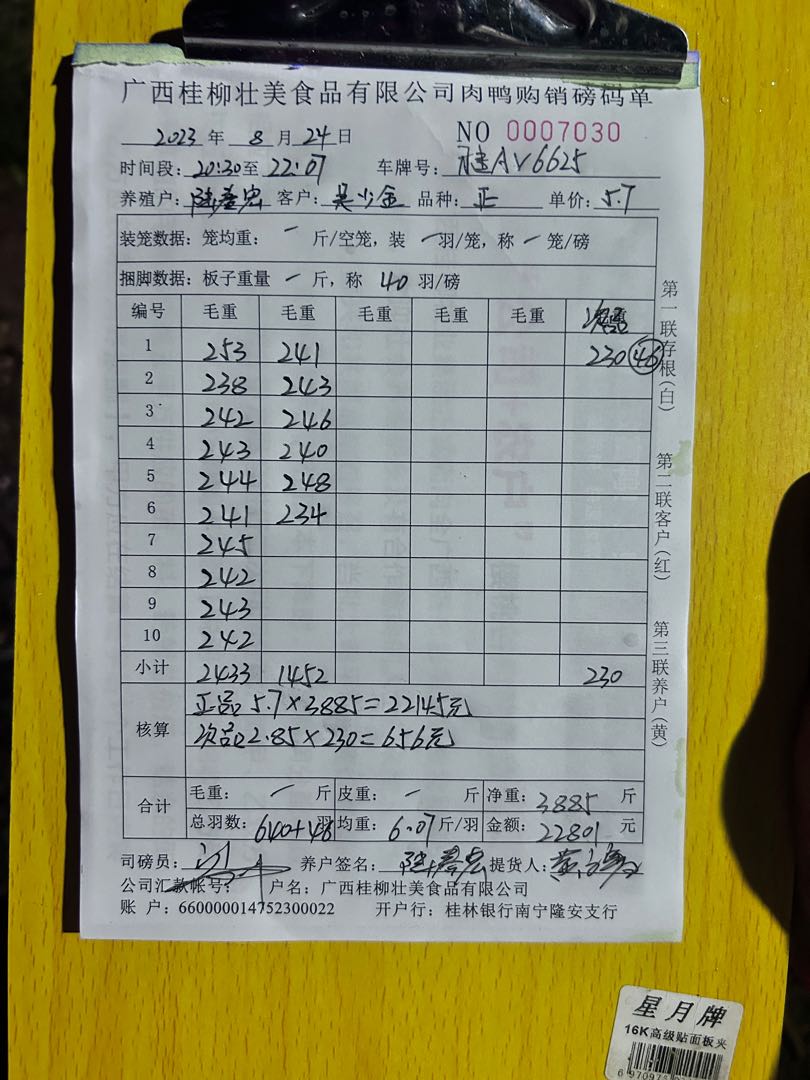 广西桂柳壮美食品有限公司肉鸭购销磅码单
2023 年 8 月 24 日 NO 0007030
时间段: 20:30 至 22:07 车牌号: AV6625
养殖户: 客户: 吴少金 品种: 正 单价: 5.7
装笼数据: 笼均重: - 斤/空笼, 装 - 羽/笼, 称 - 笼/磅
捆脚数据: 板子重量 - 斤, 称 40 羽/磅
编号 毛重 毛重 毛重 毛重 毛重 次品
1 253 241 230 46
2 238 243
3 242 246
4 243 240
5 244 248
6 241 234
7 245
8 242
9 243
10 242
小计 2433 1452 230
核算 正品 5.7×3885=22145元
次品 2.85×230=656元
合计 毛重: - 斤 皮重: - 斤 净重: 3885 斤
总羽数: 640+46 羽 均重: 6.07 斤/羽 金额: 22801 元
司磅员: 养户签名: 提货人:
公司汇款帐号: 户名: 广西桂柳壮美食品有限公司
账 户: 660000014752300022 开户行: 桂林银行南宁隆安支行
第一联存根(白)
第二联客户(红)
第三联养户(黄)
星月牌
16K高级贴面板夹